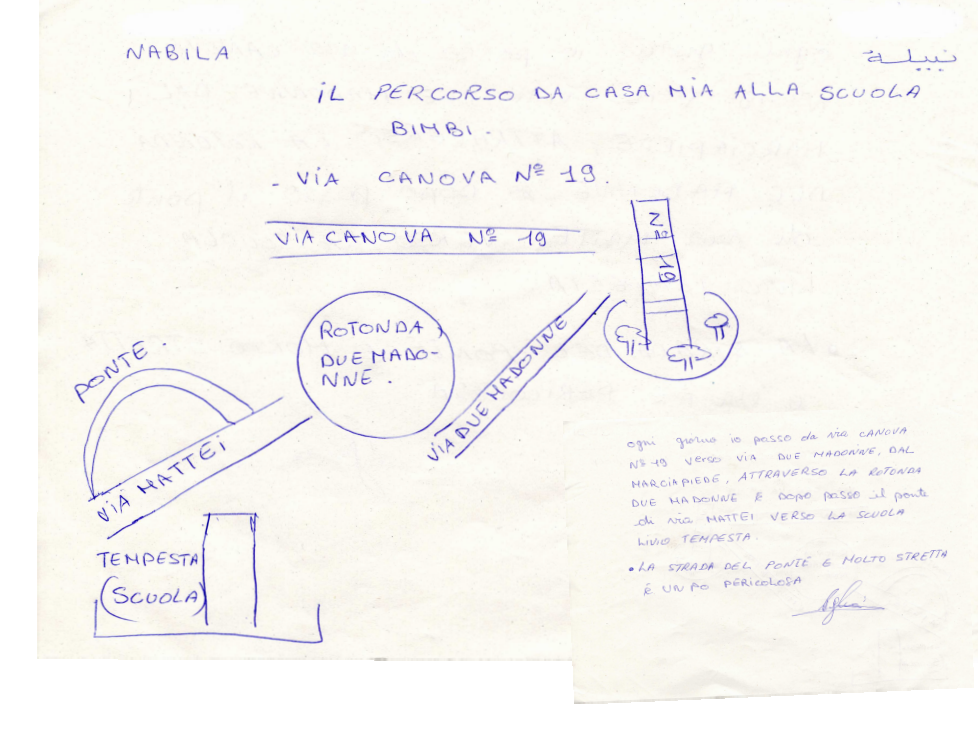 NABILA
نبيلة
iL PERCORSO DA CASA MIA ALLA SCUOLA
BIMBI.
- ViA CANOVA Nº 19.
ViA CANOVA Nº 19
Nº 19
ROTONDA
DUE MADO-
NNE.
PONTE.
ViA DUE MADONNE
ViA MATTEI
TEMPESTA
(SCUOLA)
ogni giorno io passo da via CANOVA
Nº 19 verso ViA DUE MADONNE, DAL
MARCIAPIEDE, ATTRAVERSO LA ROTONDA
DUE MADONNE E DOPO passo il ponte
di via MATTEI VERSO LA SCUOLA
LIVIO TEMPESTA.
• LA STRADA DEL PONTE E MOLTO STRETTA
E UN PO PERICOLOSA